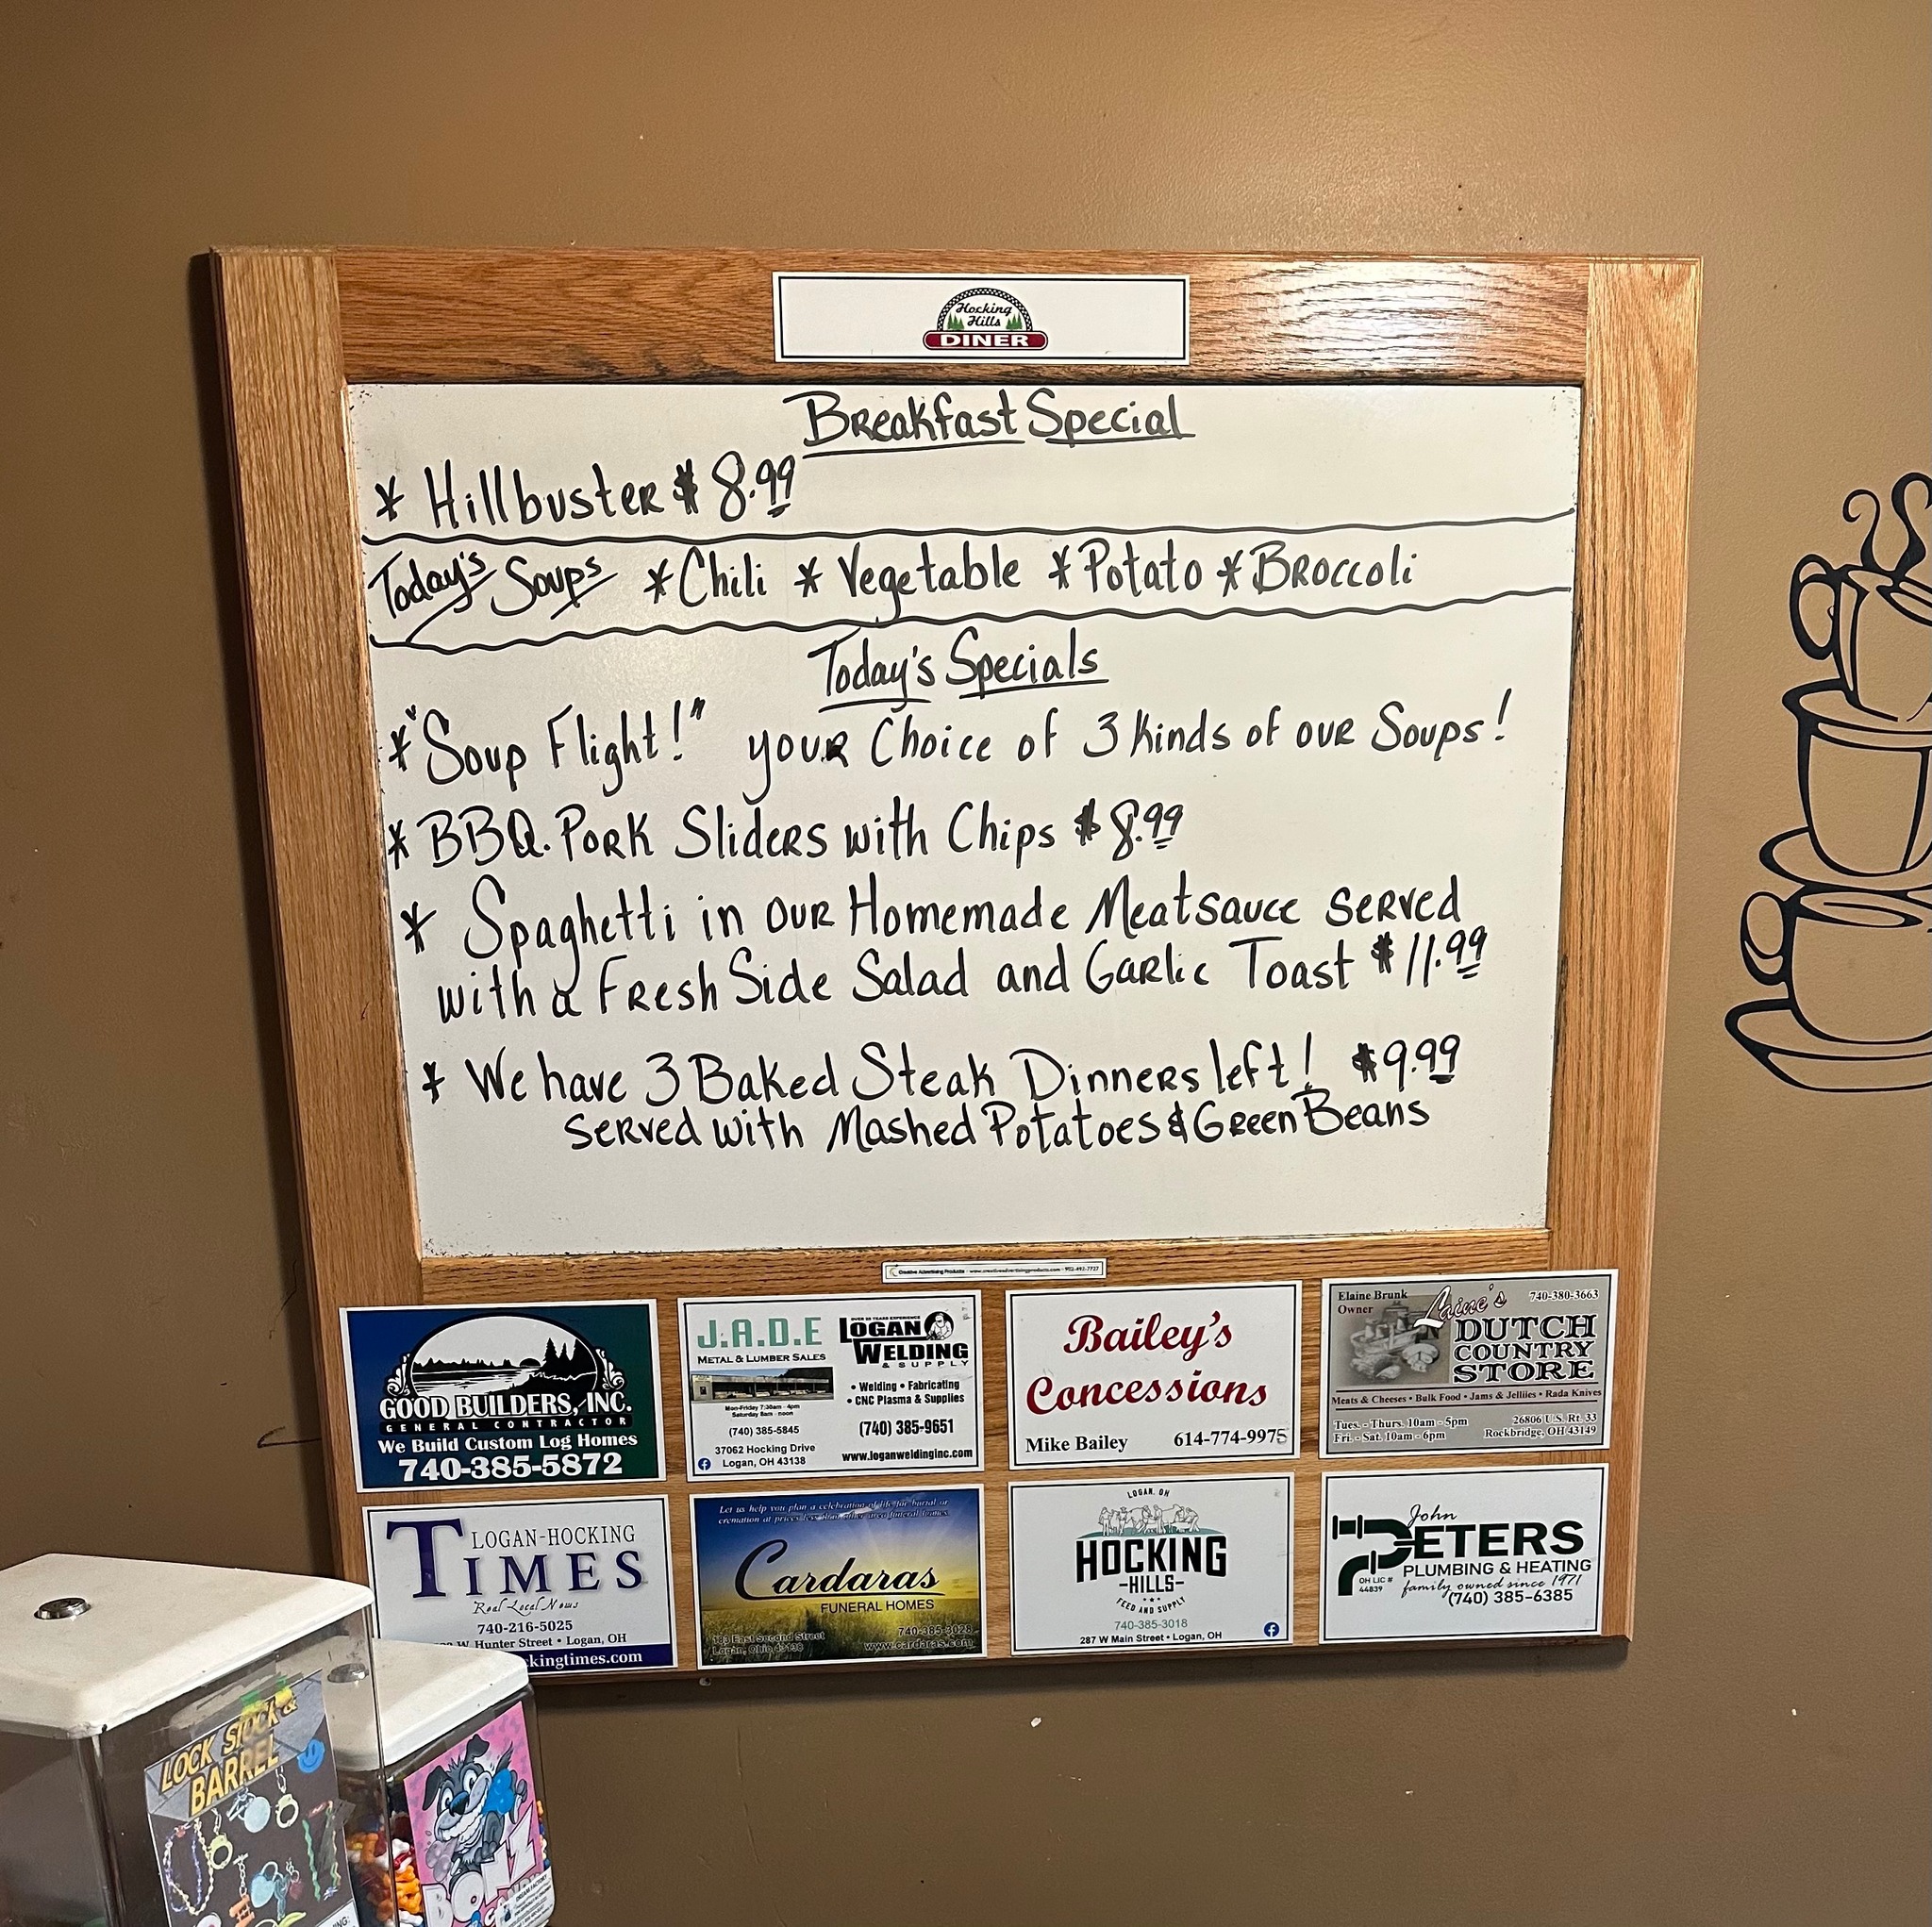 Hocking
Hills
DINER
Breakfast Special
* Hillbuster $8.99
Today's Soups *Chili *Vegetable *Potato *Broccoli
Today's Specials
*"Soup Flight!" your Choice of 3 Kinds of our Soups!
* BBQ. Pork Sliders with Chips $8.99
* Spaghetti in our Homemade Meatsauce served
with a Fresh Side Salad and Garlic Toast $11.99
* We have 3 Baked Steak Dinners left! $9.99
served with Mashed Potatoes & Green Beans
Creative Advertising Products - www.creativeadvertisingproducts.com -
GOOD BUILDERS, INC.
GENERAL CONTRACTOR
We Build Custom Log Homes
740-385-5872
J.A.D.E
METAL & LUMBER SALES
Mon-Friday 7:30am - 4pm
Saturday 8am - noon
(740) 385-5845
37062 Hocking Drive
Logan, OH 43138
OVER 25 YEARS EXPERIENCE
LOGAN
WELDING
& SUPPLY
• Welding • Fabricating
• CNC Plasma & Supplies
(740) 385-9651
www.loganweldinginc.com
Bailey's
Concessions
Mike Bailey 614-774-9975
Elaine Brunk
Owner
740-380-3663
Laine's
DUTCH
COUNTRY
STORE
Meats & Cheeses • Bulk Food • Jams & Jellies • Rada Knives
Tues. - Thurs. 10am - 5pm
Fri. - Sat. 10am - 6pm
26806 U.S. Rt. 33
Rockbridge, OH 43149
LOGAN-HOCKING
TIMES
Real Local News
740-216-5025
W. Hunter Street • Logan, OH
kingtimes.com
Let us help you plan a celebration of life for burial or
cremation at prices less than other area funeral homes.
Cardaras
FUNERAL HOMES
183 East Second Street
Logan, Ohio 43138
740-385-3028
www.cardaras.com
LOGAN, OH
HOCKING
-HILLS-
FEED AND SUPPLY
740-385-3018
287 W Main Street • Logan, OH
John
PETERS
PLUMBING & HEATING
OH LIC #
44839
family owned since 1971
(740) 385-6385
LOCK STOCK &
BARREL
BONZ